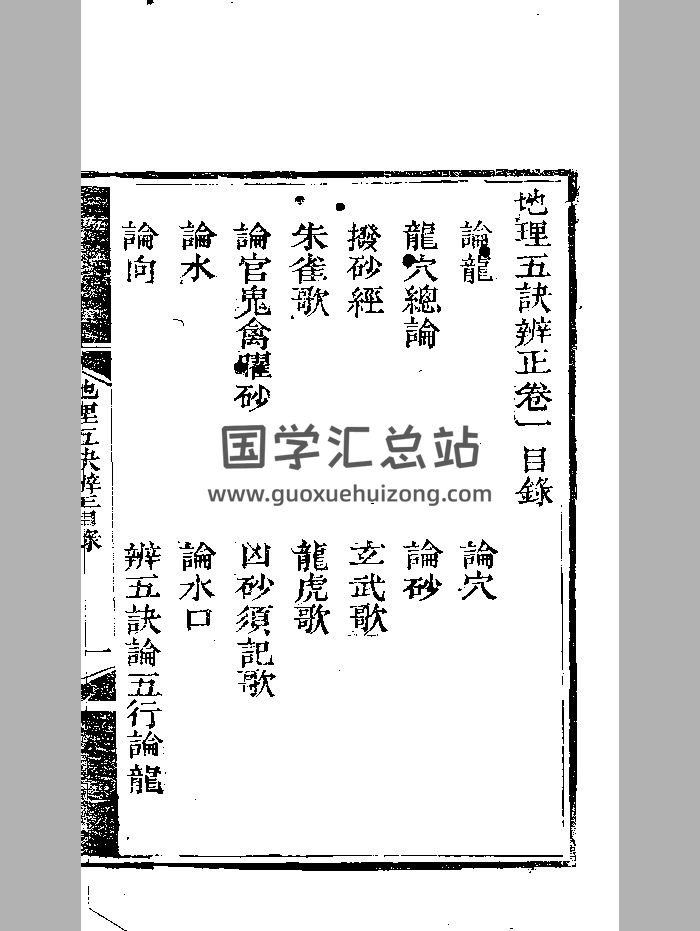 地理五訣辨正卷一目錄
論龍 論穴
龍穴總論 論砂
撥砂經 玄武歌
朱雀歌 龍虎歌
論官鬼禽曜砂 凶砂須記歌
論水 論水口
論向 辨五訣論五行論龍
地理五訣辨正目錄
一
国学汇总站
www.guoxuehuizong.com